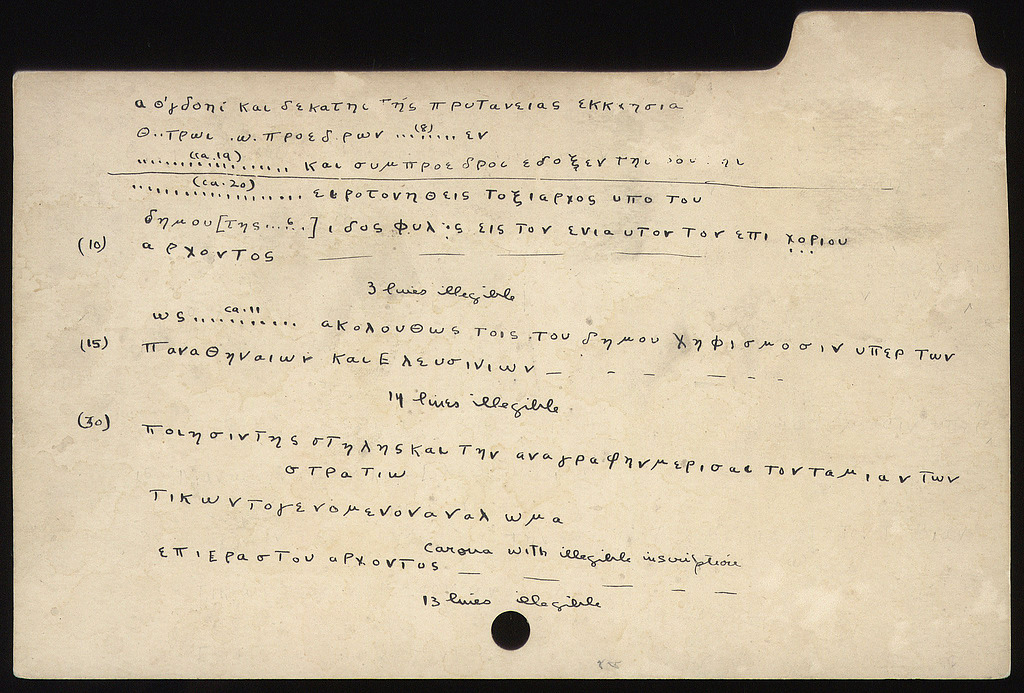 α ὀγδοηι και δεκατηι της πρυτανειας εκκλησια
θ..τρωι .ω. προεδ.ρων ...(8)..... εν
......(ca. 19)............ και συμπροεδροι εδοξεν τηι .ου . ηι
......(ca. 20)............ τοξιαρχος υπο του
δημου[της ...6...] ι δος φυλ.ς εις τον ενιαυτον τον επι χοριου
(10) αρχοντος — — — —
3 lines illegible
ως ....ca. 11........ ακολουθως τοις του δημου υπερ των
(15) Παναθηναιων και Ελευσινιων — - - — - -
14 lines illegible
(30) ποιησιν της στηλης και την αναγραφην μερισαι τον ταμιαν των
στρατιω
τικων το γενομενον αναλωμα
corona with illegible inscription
επι Εραστου αρχοντος — — — - —
13 lines illegible